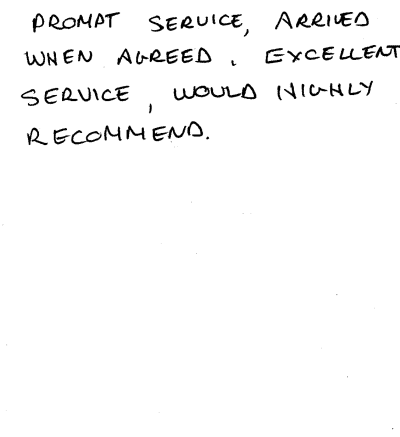 PROMPT SERVICE, ARRIVED
WHEN AGREED. EXCELLENT
SERVICE, WOULD HIGHLY
RECOMMEND.